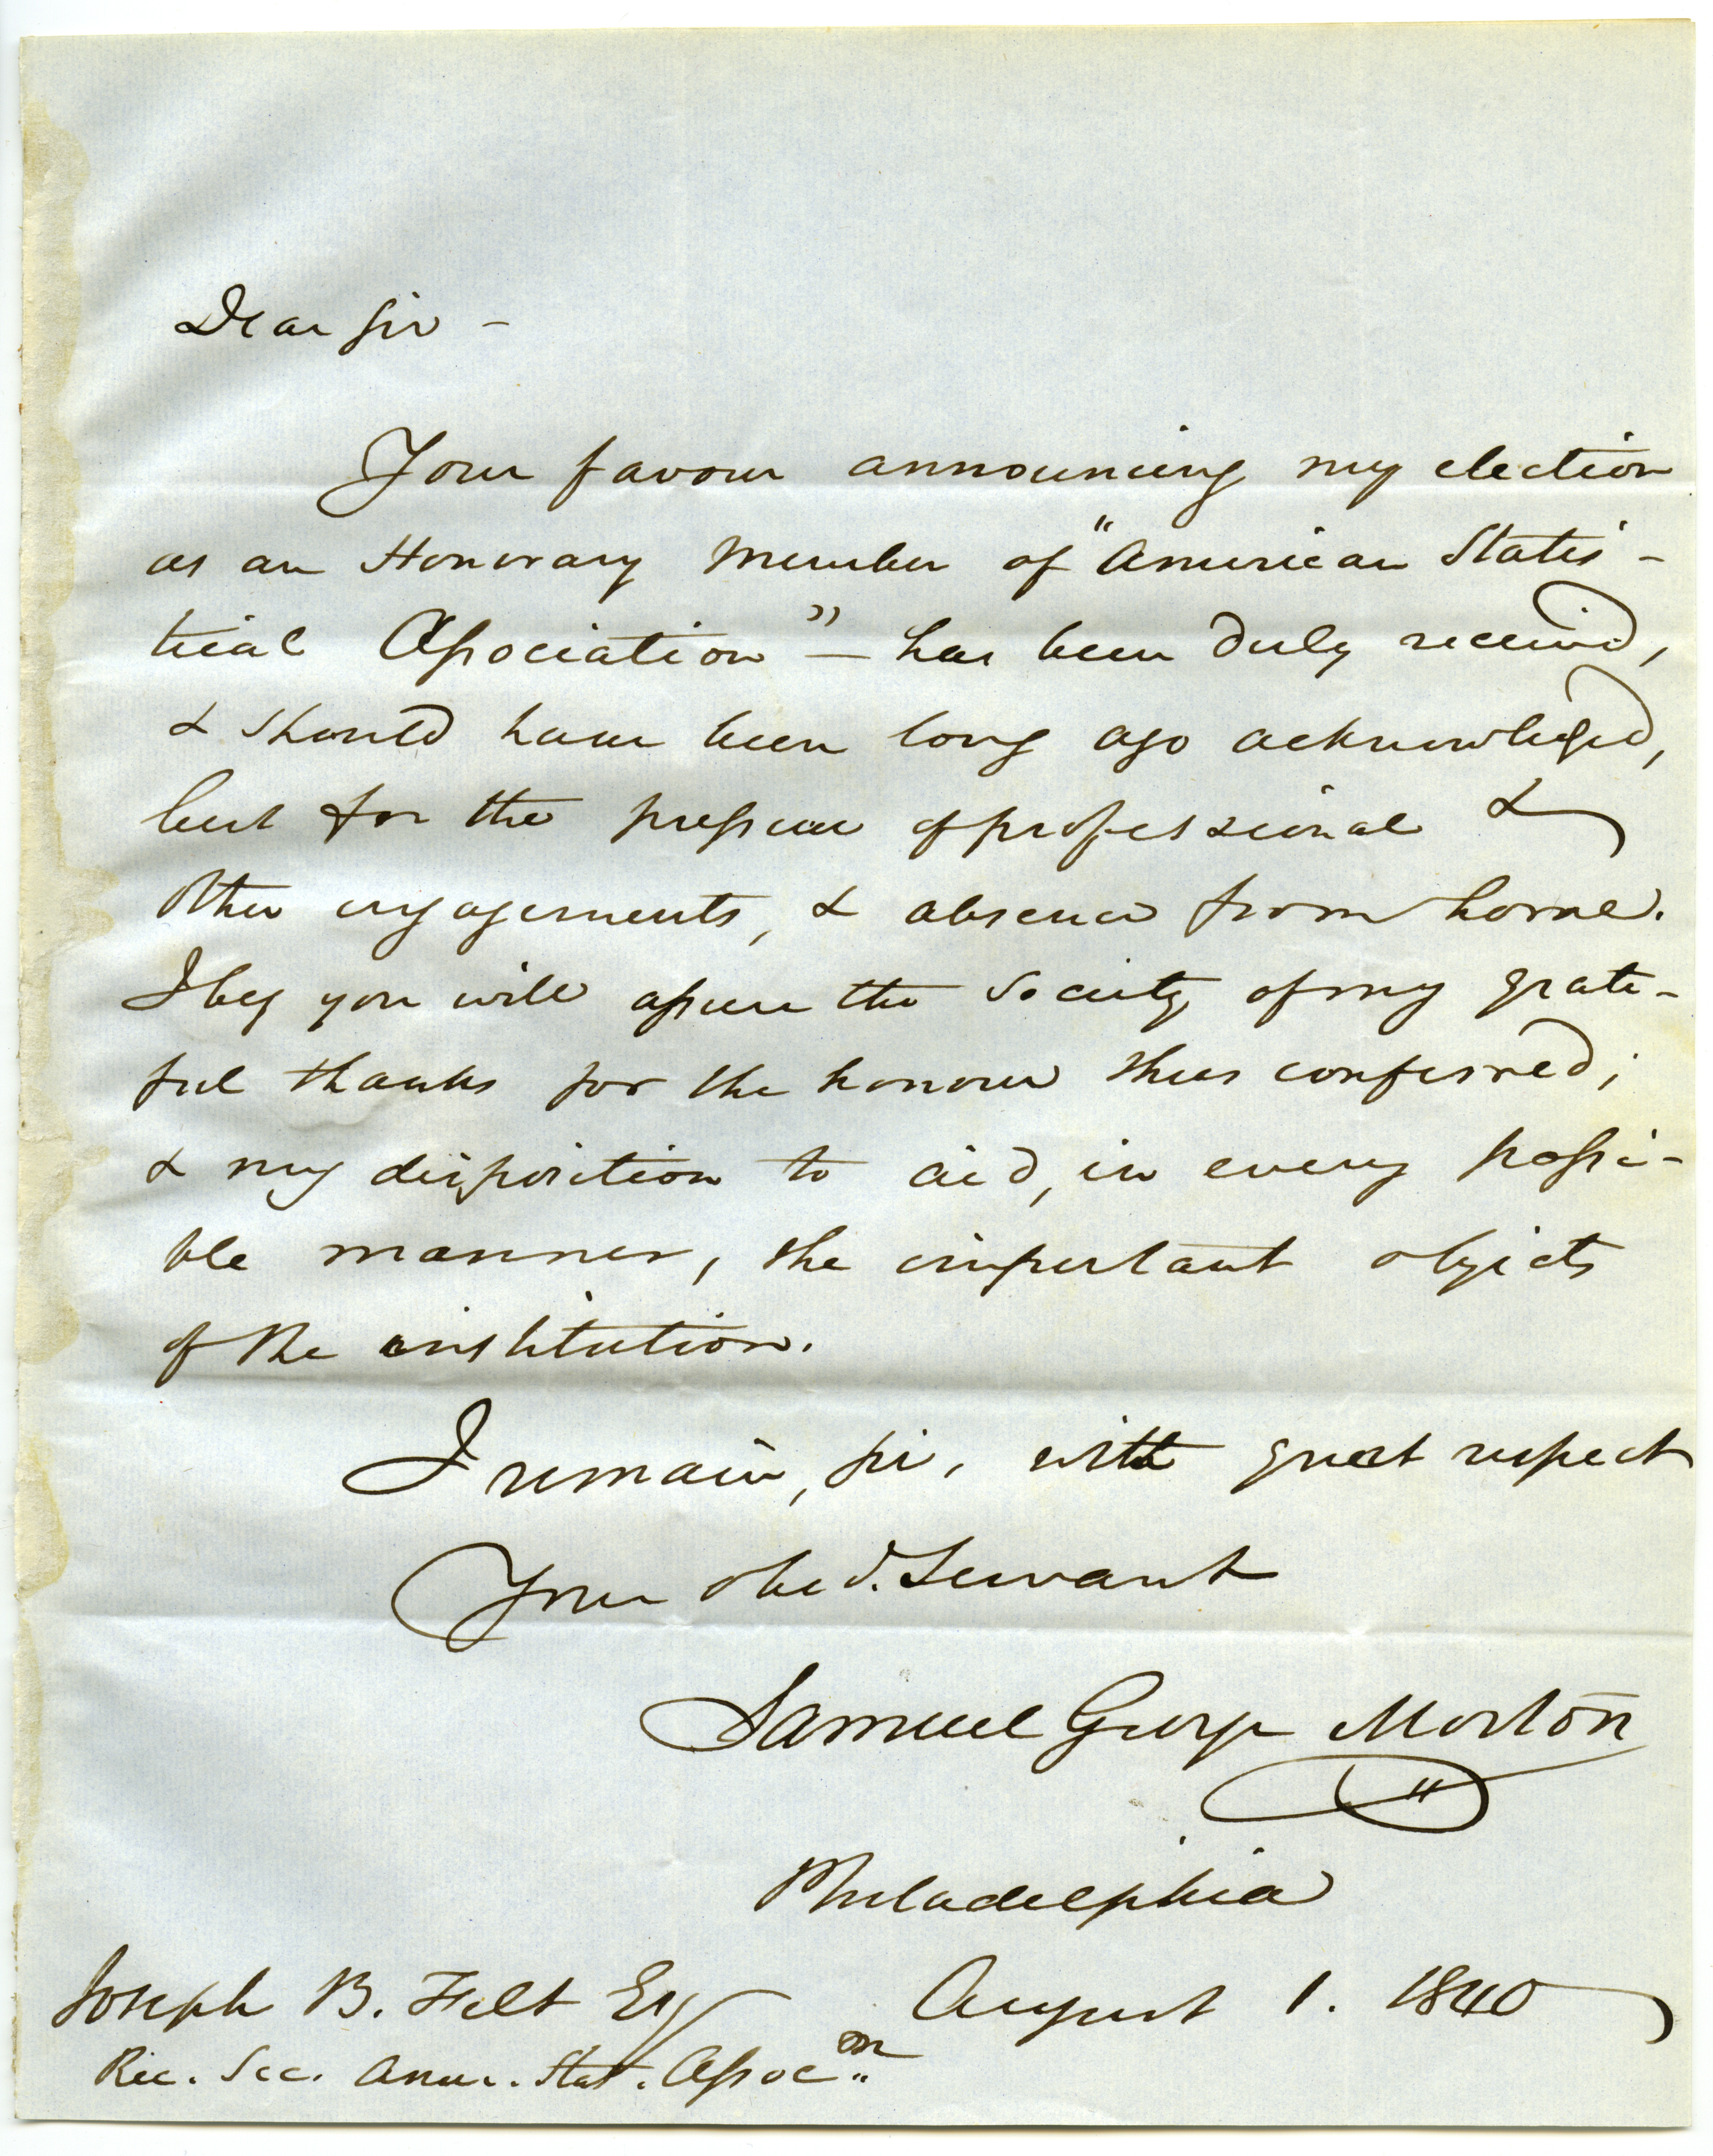 Dear Sir -
Your favour announcing my election
as an Honorary Member of "American Statis-
tical Association" - has been duly received,
& should have been long ago acknowledged,
but for the pressure of professional &
other engagements, & absence from home.
I beg you will assure the Society of my grate-
ful thanks for the honour thus conferred;
& my disposition to aid, in every possi-
ble manner, the important objects
of the institution.
I remain, sir, with great respect
Your obed. Servant
Samuel George Morton
Philadelphia
August 1. 1840
Joseph B. Felt Esq
Rec. Sec. Amer. Stat. Assoc.n